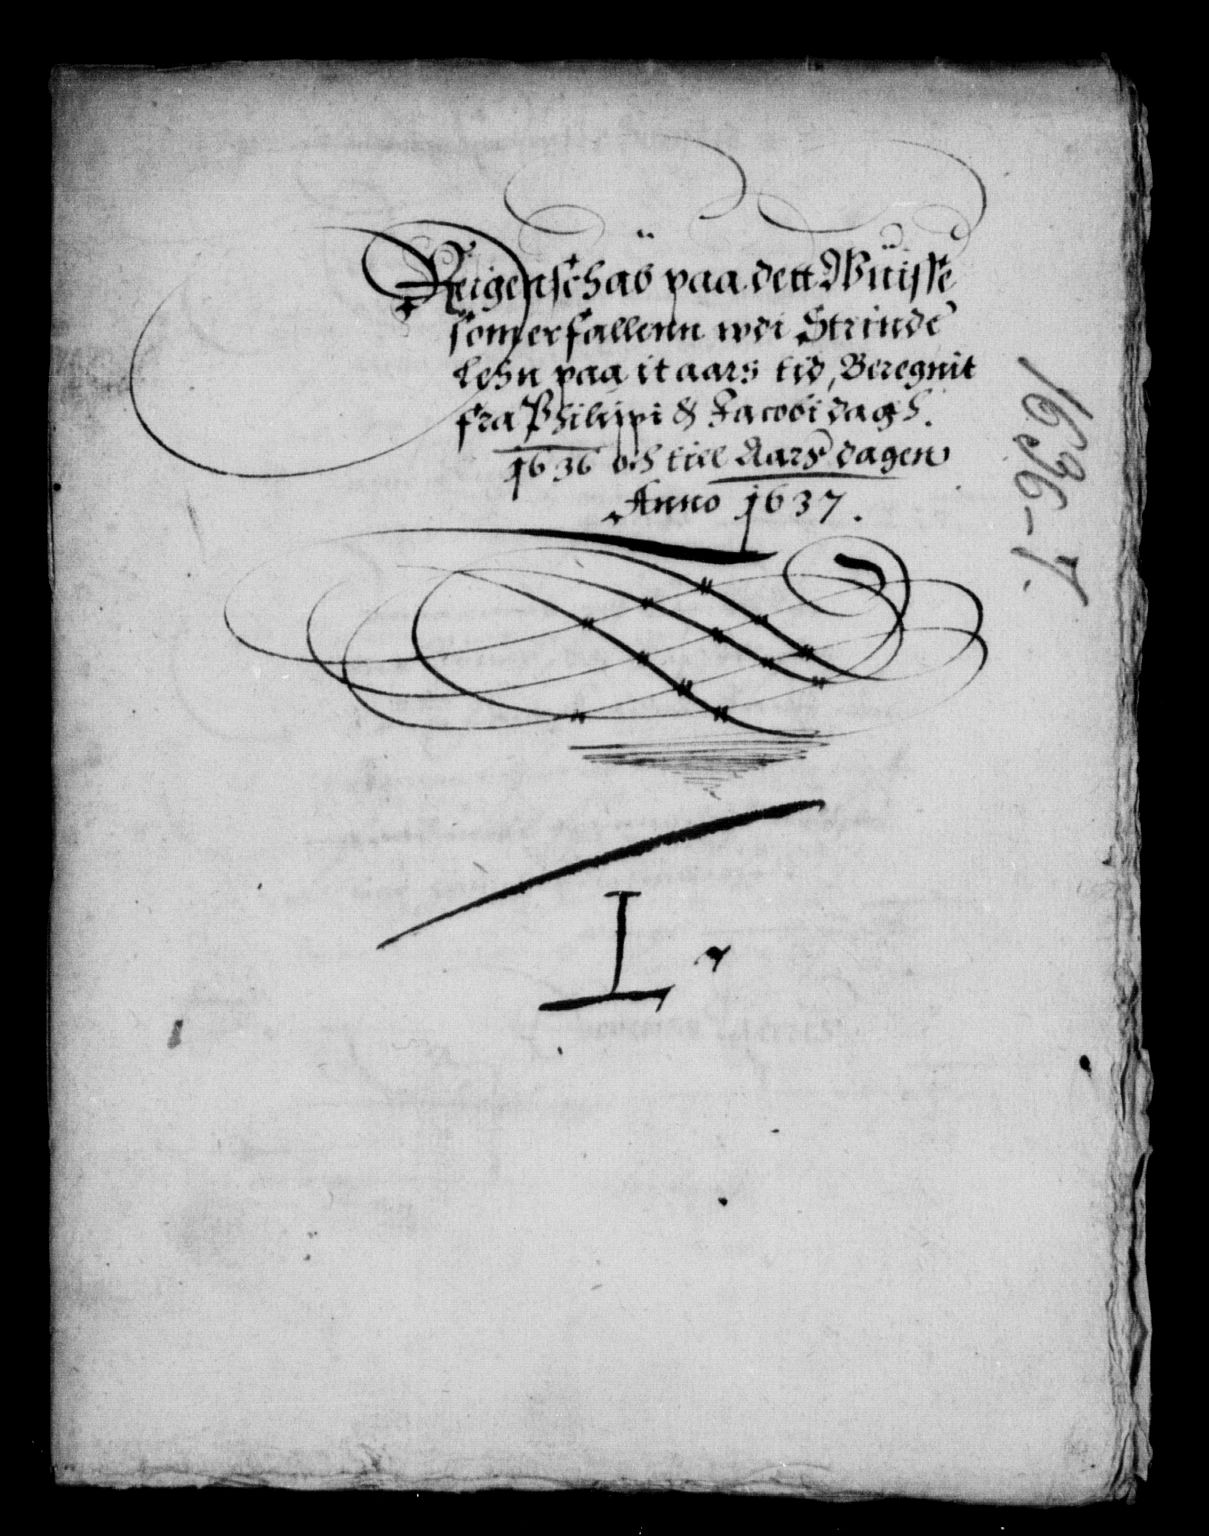 Reigenschab paa dett Wüisse
som er fallenn wdi Strinde
Lehn paa it aars tid, Beregnit
fra Philippi & Jacobi dagh.
1636 och till Aars dagen
Anno 1637.
I
1636-7.